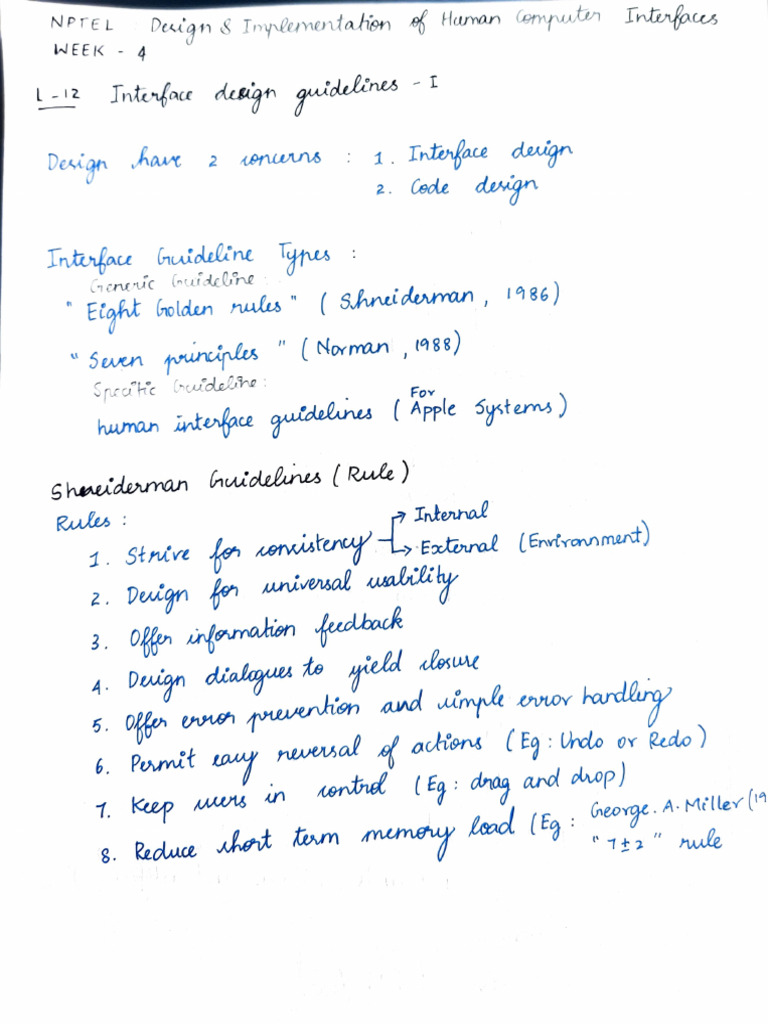 NPTEL Design & Implementation of Human Computer Interfaces
WEEK - 4
L-12 Interface design guidelines - I
Design have 2 concerns : 1. Interface design
2. Code design
Interface Guideline Types :
Generic Guideline :
"Eight Golden rules" ( Shneiderman, 1986)
"Seven principles" ( Norman, 1988)
Specific Guideline :
human interface guidelines ( For Apple Systems )
Shneiderman Guidelines ( Rule )
Rules :
1. Strive for concistency → Internal
→ External (Environnment)
2. Design for universal usability
3. Offer information feedback
4. Design dialogues to yield closure
5. Offer error prevention and simple error handling
6. Permit easy reversal of actions (Eg : Undo or Redo )
7. Keep users in control (Eg : drag and drop)
8. Reduce short term memory load (Eg : George. A. Miller (19
"7±2" rule